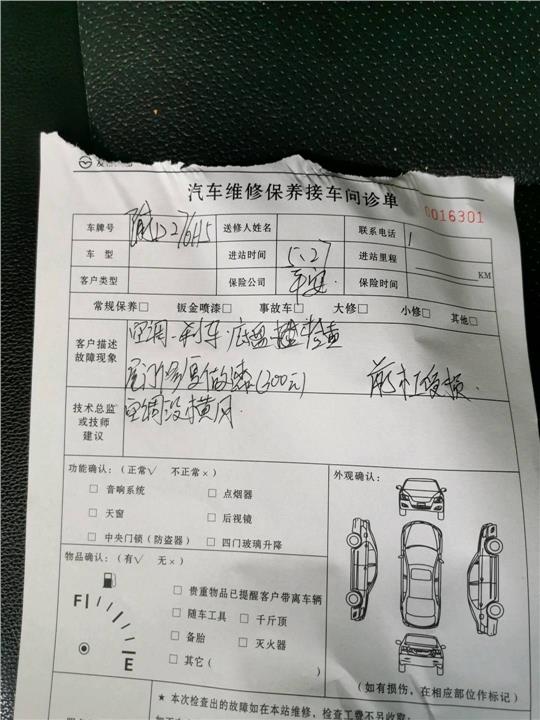 汽车维修保养接车问诊单
0016301
车牌号 送修人姓名 联系电话
车 型 进站时间 5.27 进站里程 KM
客户类型 保险公司 平安 保险时间
常规保养□ 钣金喷漆□ 事故车□ 大修□ 小修□ 其他□
客户描述
故障现象
空调.刹车.底盘 检查
(300元)
技术总监
或技师
建议
空调没
功能确认：（正常√ 不正常×）
□ 音响系统 □ 点烟器
□ 天窗 □ 后视镜
□ 中央门锁（防盗器） □ 四门玻璃升降
外观确认：
物品确认：（有√ 无×）
□ 贵重物品已提醒客户带离车辆
□ 随车工具 □ 千斤顶
□ 备胎 □ 灭火器
□ 其它（ ）
F
E
（如有损伤，在相应部位作标记）
★ 本次检查出的故障如在本站维修，检查工费不另收取；